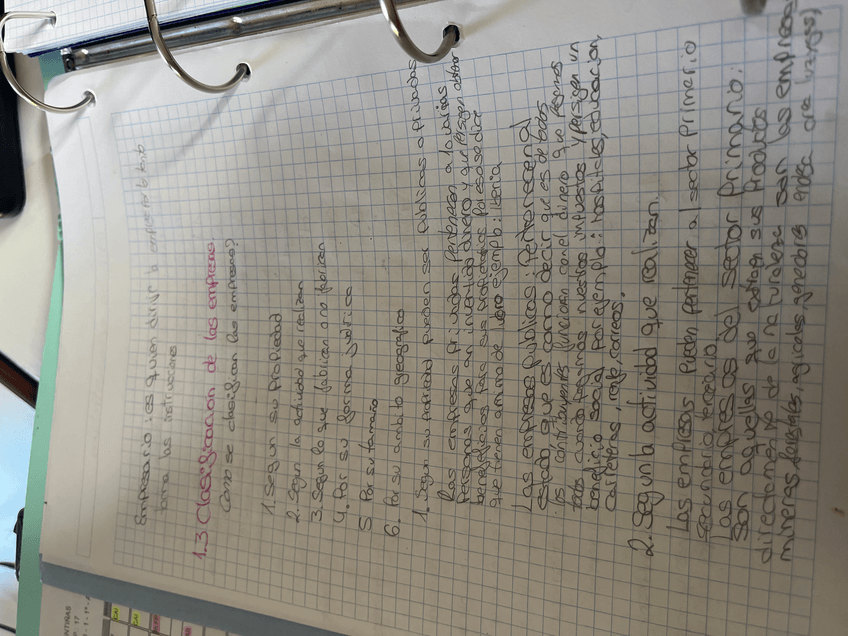 Empresario: es quien dirije la empresa
toma las instrucciones
1.3 Clasificacion de las empresas.
Como se clasifican las empresas?
1. Segun su propiedad
2. Segun la actividad que realizan
3. Segun lo que fabrican o no fabrican
4. Por su forma juridica
5 Por su tamaño
6. Por su ambito geografico
1. Segun su propiedad pueden ser publicas o privadas
Las empresas privadas pertenecen a la varias
personas que an invertido dinero y que persigen obtener
beneficios para sus propietarios Por eso se dice
que tienen animo de lucro ejemplo: Iberia
Las empresas publicas: Pertenecen al
estado que es como decir que es de todos
los contribuyentes funcionan con el dinero que pagamos
todos cuando pagamos nuestros impuestos y persigen un
beneficio social Por ejemplo: hospitales, educacion,
carreteras, renfe, correos.
2. Segun la actividad que realizan.
Las empresas pueden pertenecer al sector primario
secundario terciario.
Las empresas del sector Primario:
Son aquellas que extraen sus productos
directamente de la naturaleza son las empresas
mineras, forestales, agricolas, ganaderas